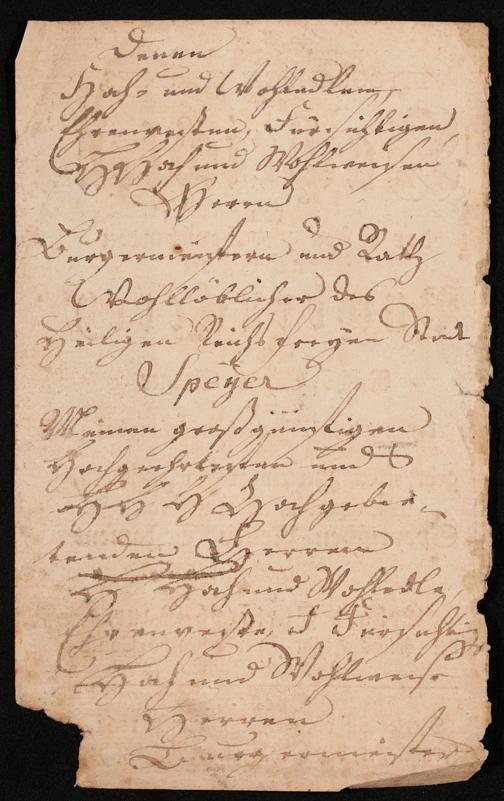 Denen
Hoch- und Wohledlen,
Ehrenvesten, Fürsichtigen,
Hoch und Wohlweisen
Herren
Burgermeistern und Rath
Wohllöblicher des
Heiligen Reichs freyen Stadt
Speyer
Meinen großgünstigen
Hochgeehrtesten und
H H H Hochgebie-
tenden Herren
Hoch und Wohledle,
Ehrenveste, Fürsichtige
Hoch und Wohlweise
Herren
Burgermeister